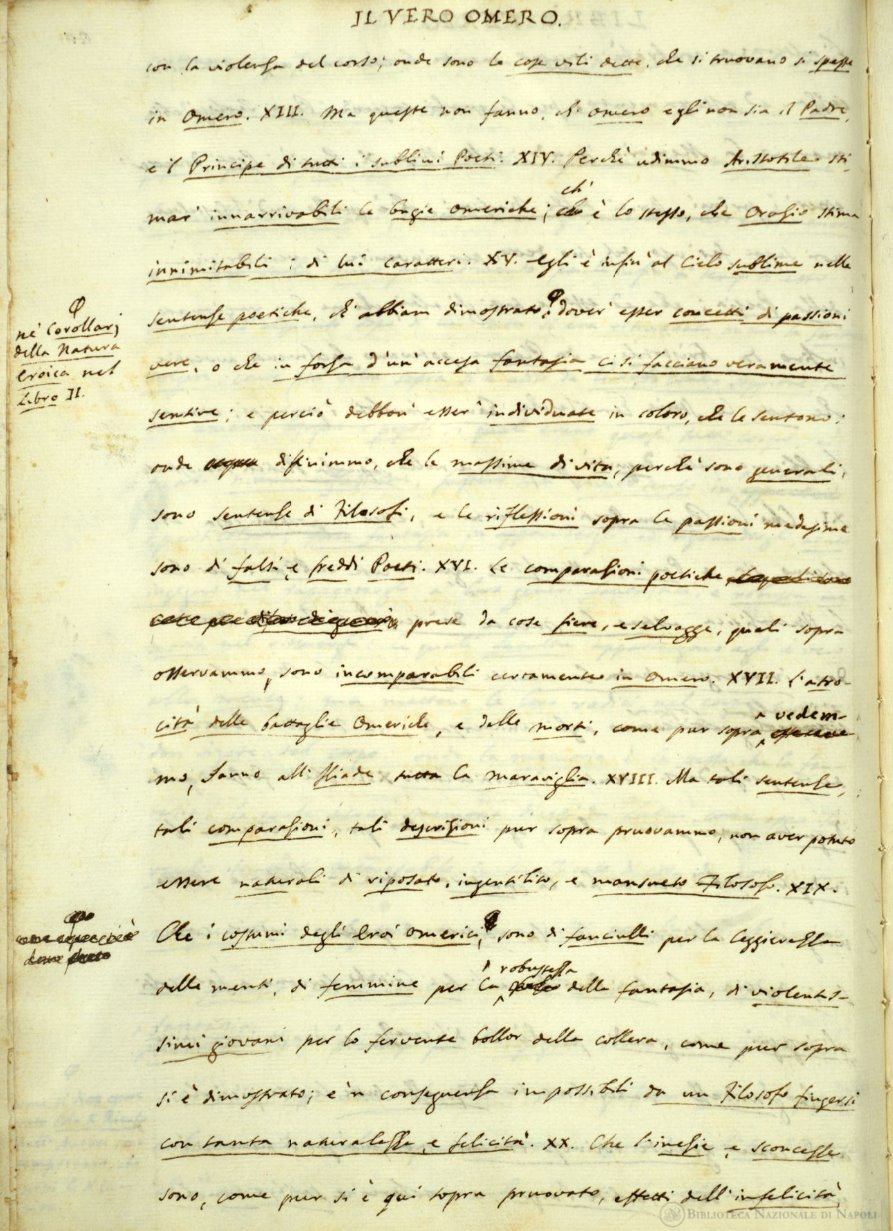 IL VERO OMERO.
con la violenza del corso; onde sono le cose vili dette, che si truovano sì spesse
in Omero. XIII. Ma queste non fanno, ch' Omero egli non sia il Padre,
e 'l Principe di tutti i sublimi Poeti. XIV. Perchè udimmo Aristotile sti-
mar' innarrivabili le bugie Omeriche; ch' è lo stesso, che Orazio stima
innimitabili i di lui caratteri. XV. Egli è infin' al Cielo sublime nelle
sentenze poetiche, ch' abbiam dimostrato dover' esser concetti di passioni
nè Corollarj
della Natura
Eroica nel
Libro II.
vere, o che in forza d'un' accesa fantasia ci si facciano veramente
sentire; e perciò debbon' esser' individuate in coloro, che le sentono:
onde diffinimmo, che le massime di vita, perchè sono generali,
sono sentenze di Filosofi, e le riflessioni sopra le passioni medesime
sono di falsi, e freddi Poeti. XVI. Le comparazioni poetiche
prese da cose fiere, e selvagge, quali sopra
osservammo, sono incomparabili certamente in Omero. XVII. L'atro-
cità delle battaglie Omeriche, e delle morti, come pur sopra vedem-
mo, fanno all' Iliade tutta la maraviglia. XVIII. Ma tali sentenze,
tali comparazioni, tali descrizioni pur sopra pruovammo, non aver potuto
essere naturali di riposato, ingentilito, e mansueto Filosofo. XIX.
Che i costumi degli Eroi Omerici sono di fanciulli per la leggierezza
delle menti, di femmine per la robustezza della fantasia, di violentis-
simi giovani per lo fervente bollor della collera, come pur sopra
si è dimostrato; e 'n conseguenza impossibili da un Filosofo fingersi
con tanta naturalezza, e felicità. XX. Che l'inezie, e sconcezze
sono, come pur si è qui sopra pruovato, effetti dell' infelicità,
BIBLIOTECA NAZIONALE DI NAPOLI